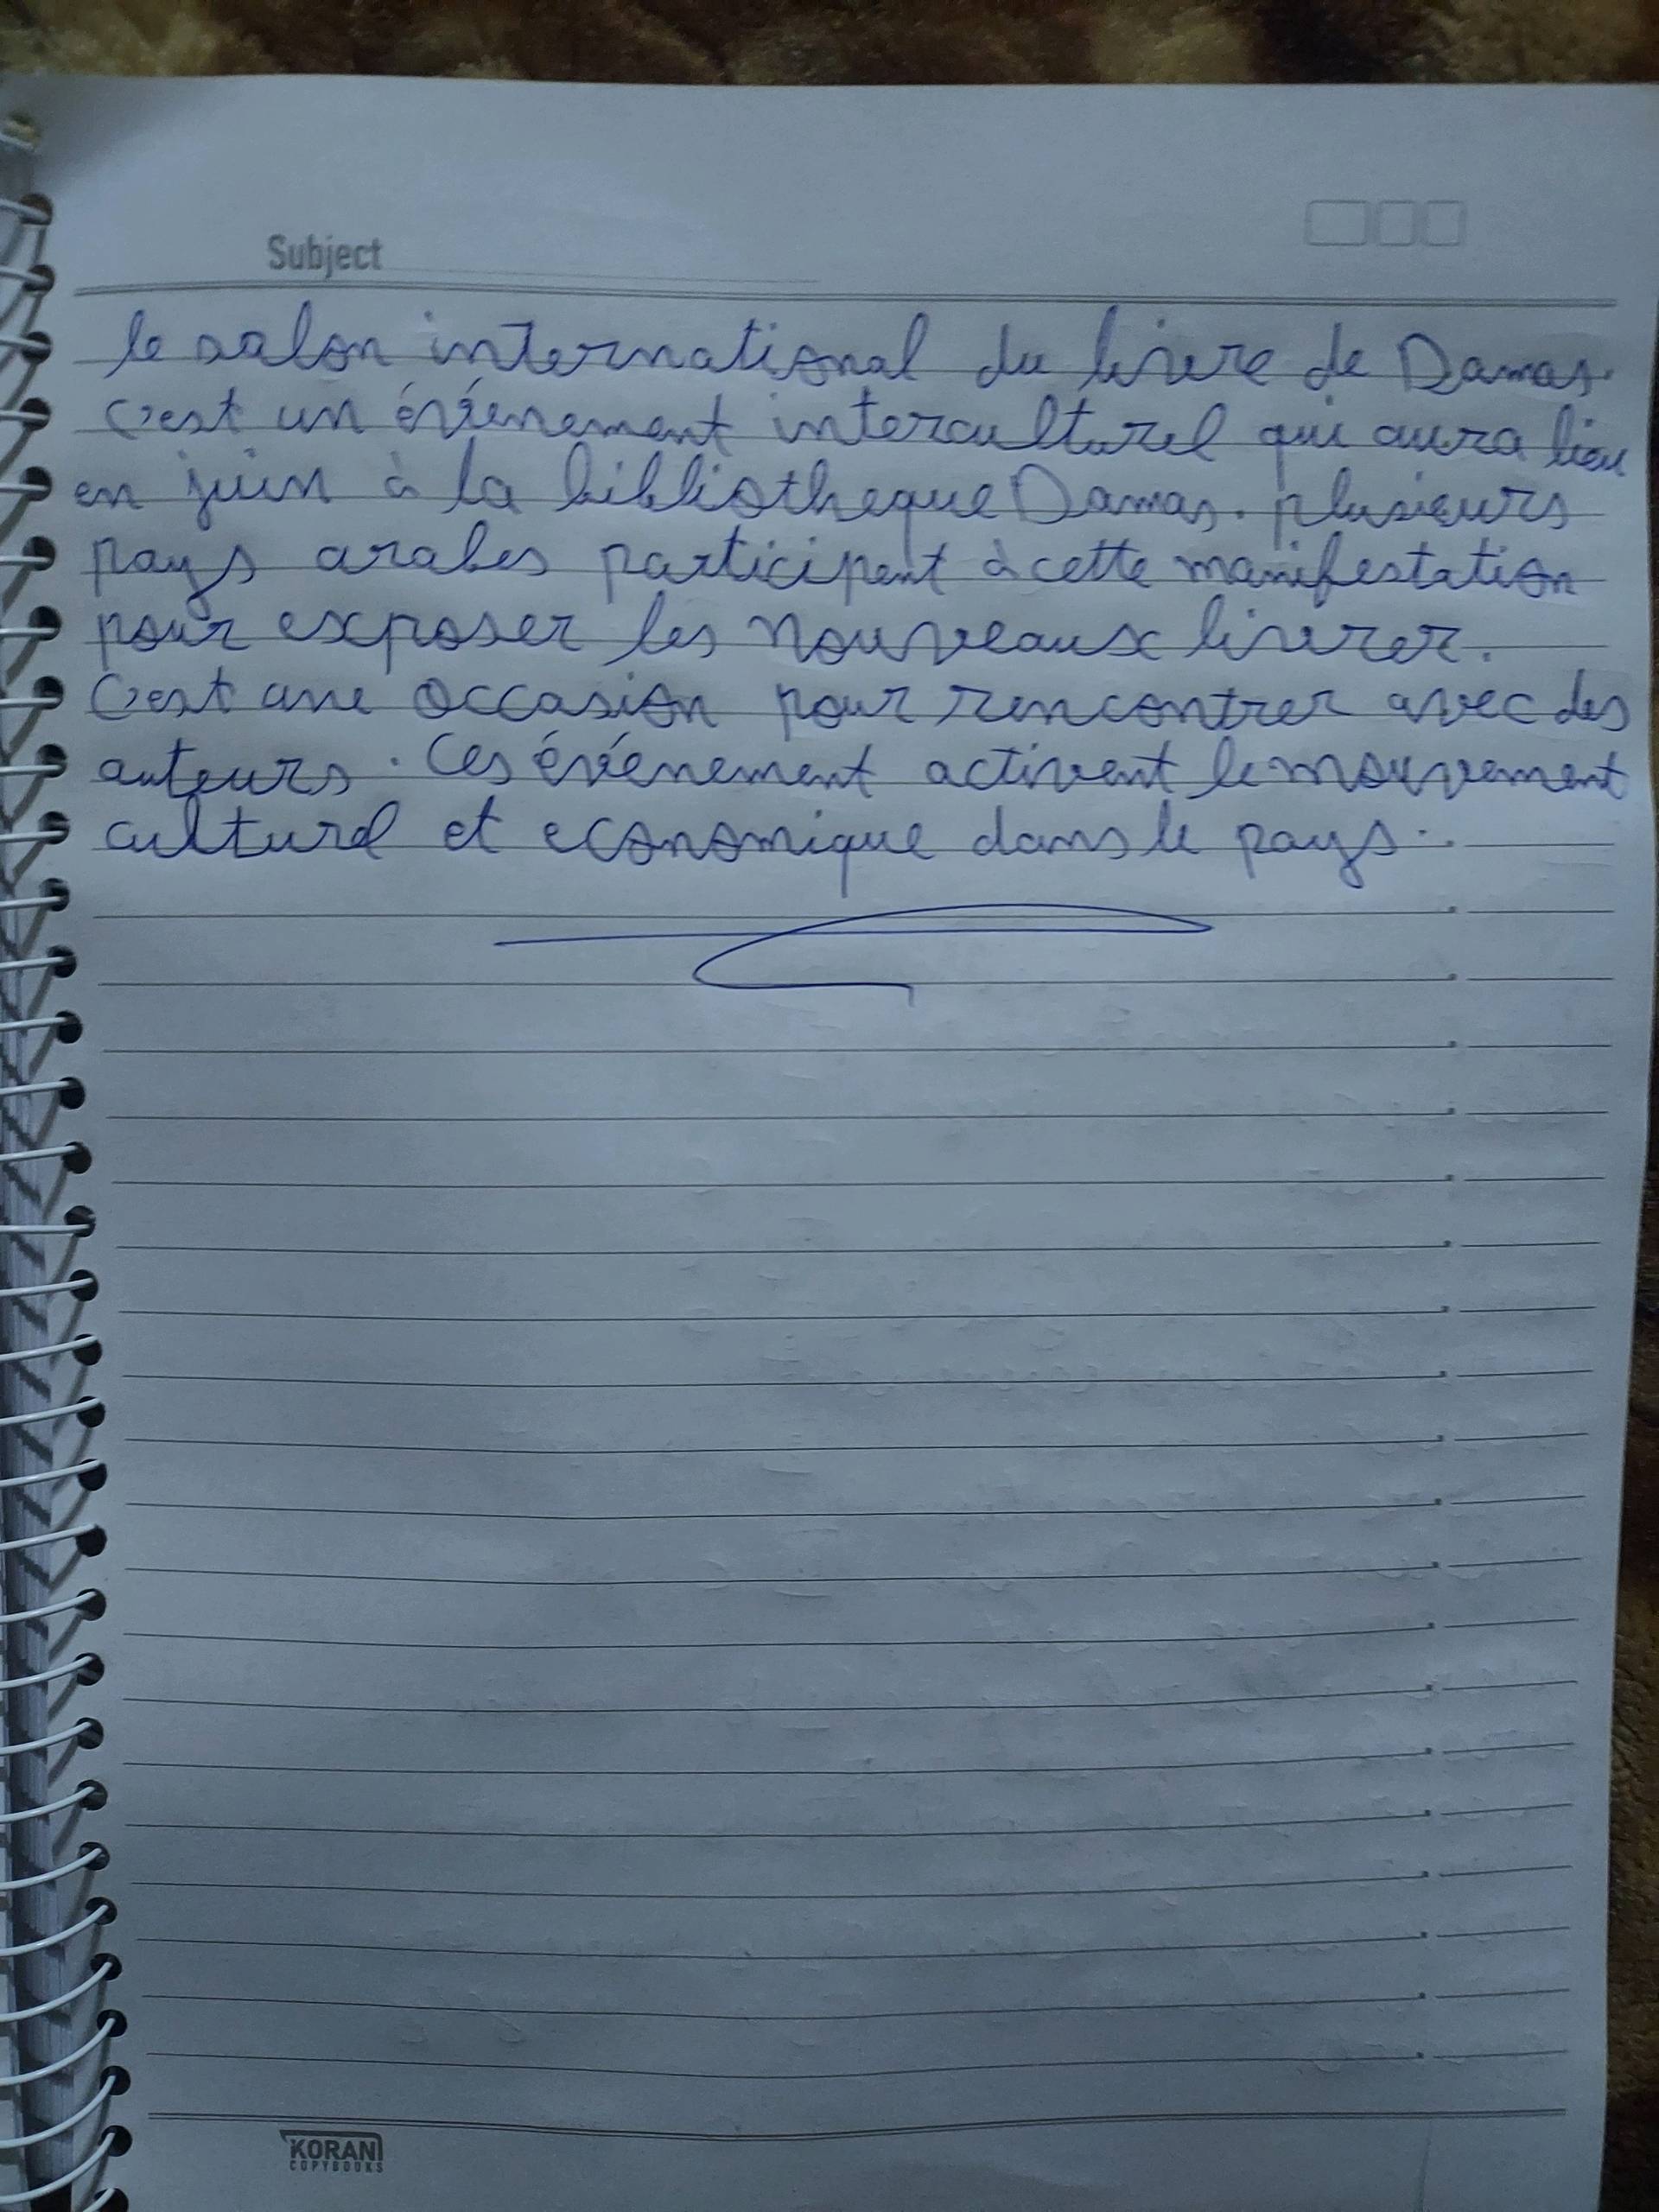 Subject
le salon international du livre de Damas.
C'est un événement interculturel qui aura lieu
en juin à la bibliotheque Damas. plusieurs
pays arabes participent à cette manifestation
pour exposer les nouveaux livrer.
C'est une occasion pour rencontrer avec des
auteurs. Ces événement activent le mouvement
culturel et economique dans le pays.
KORAN
COPYBOOKS